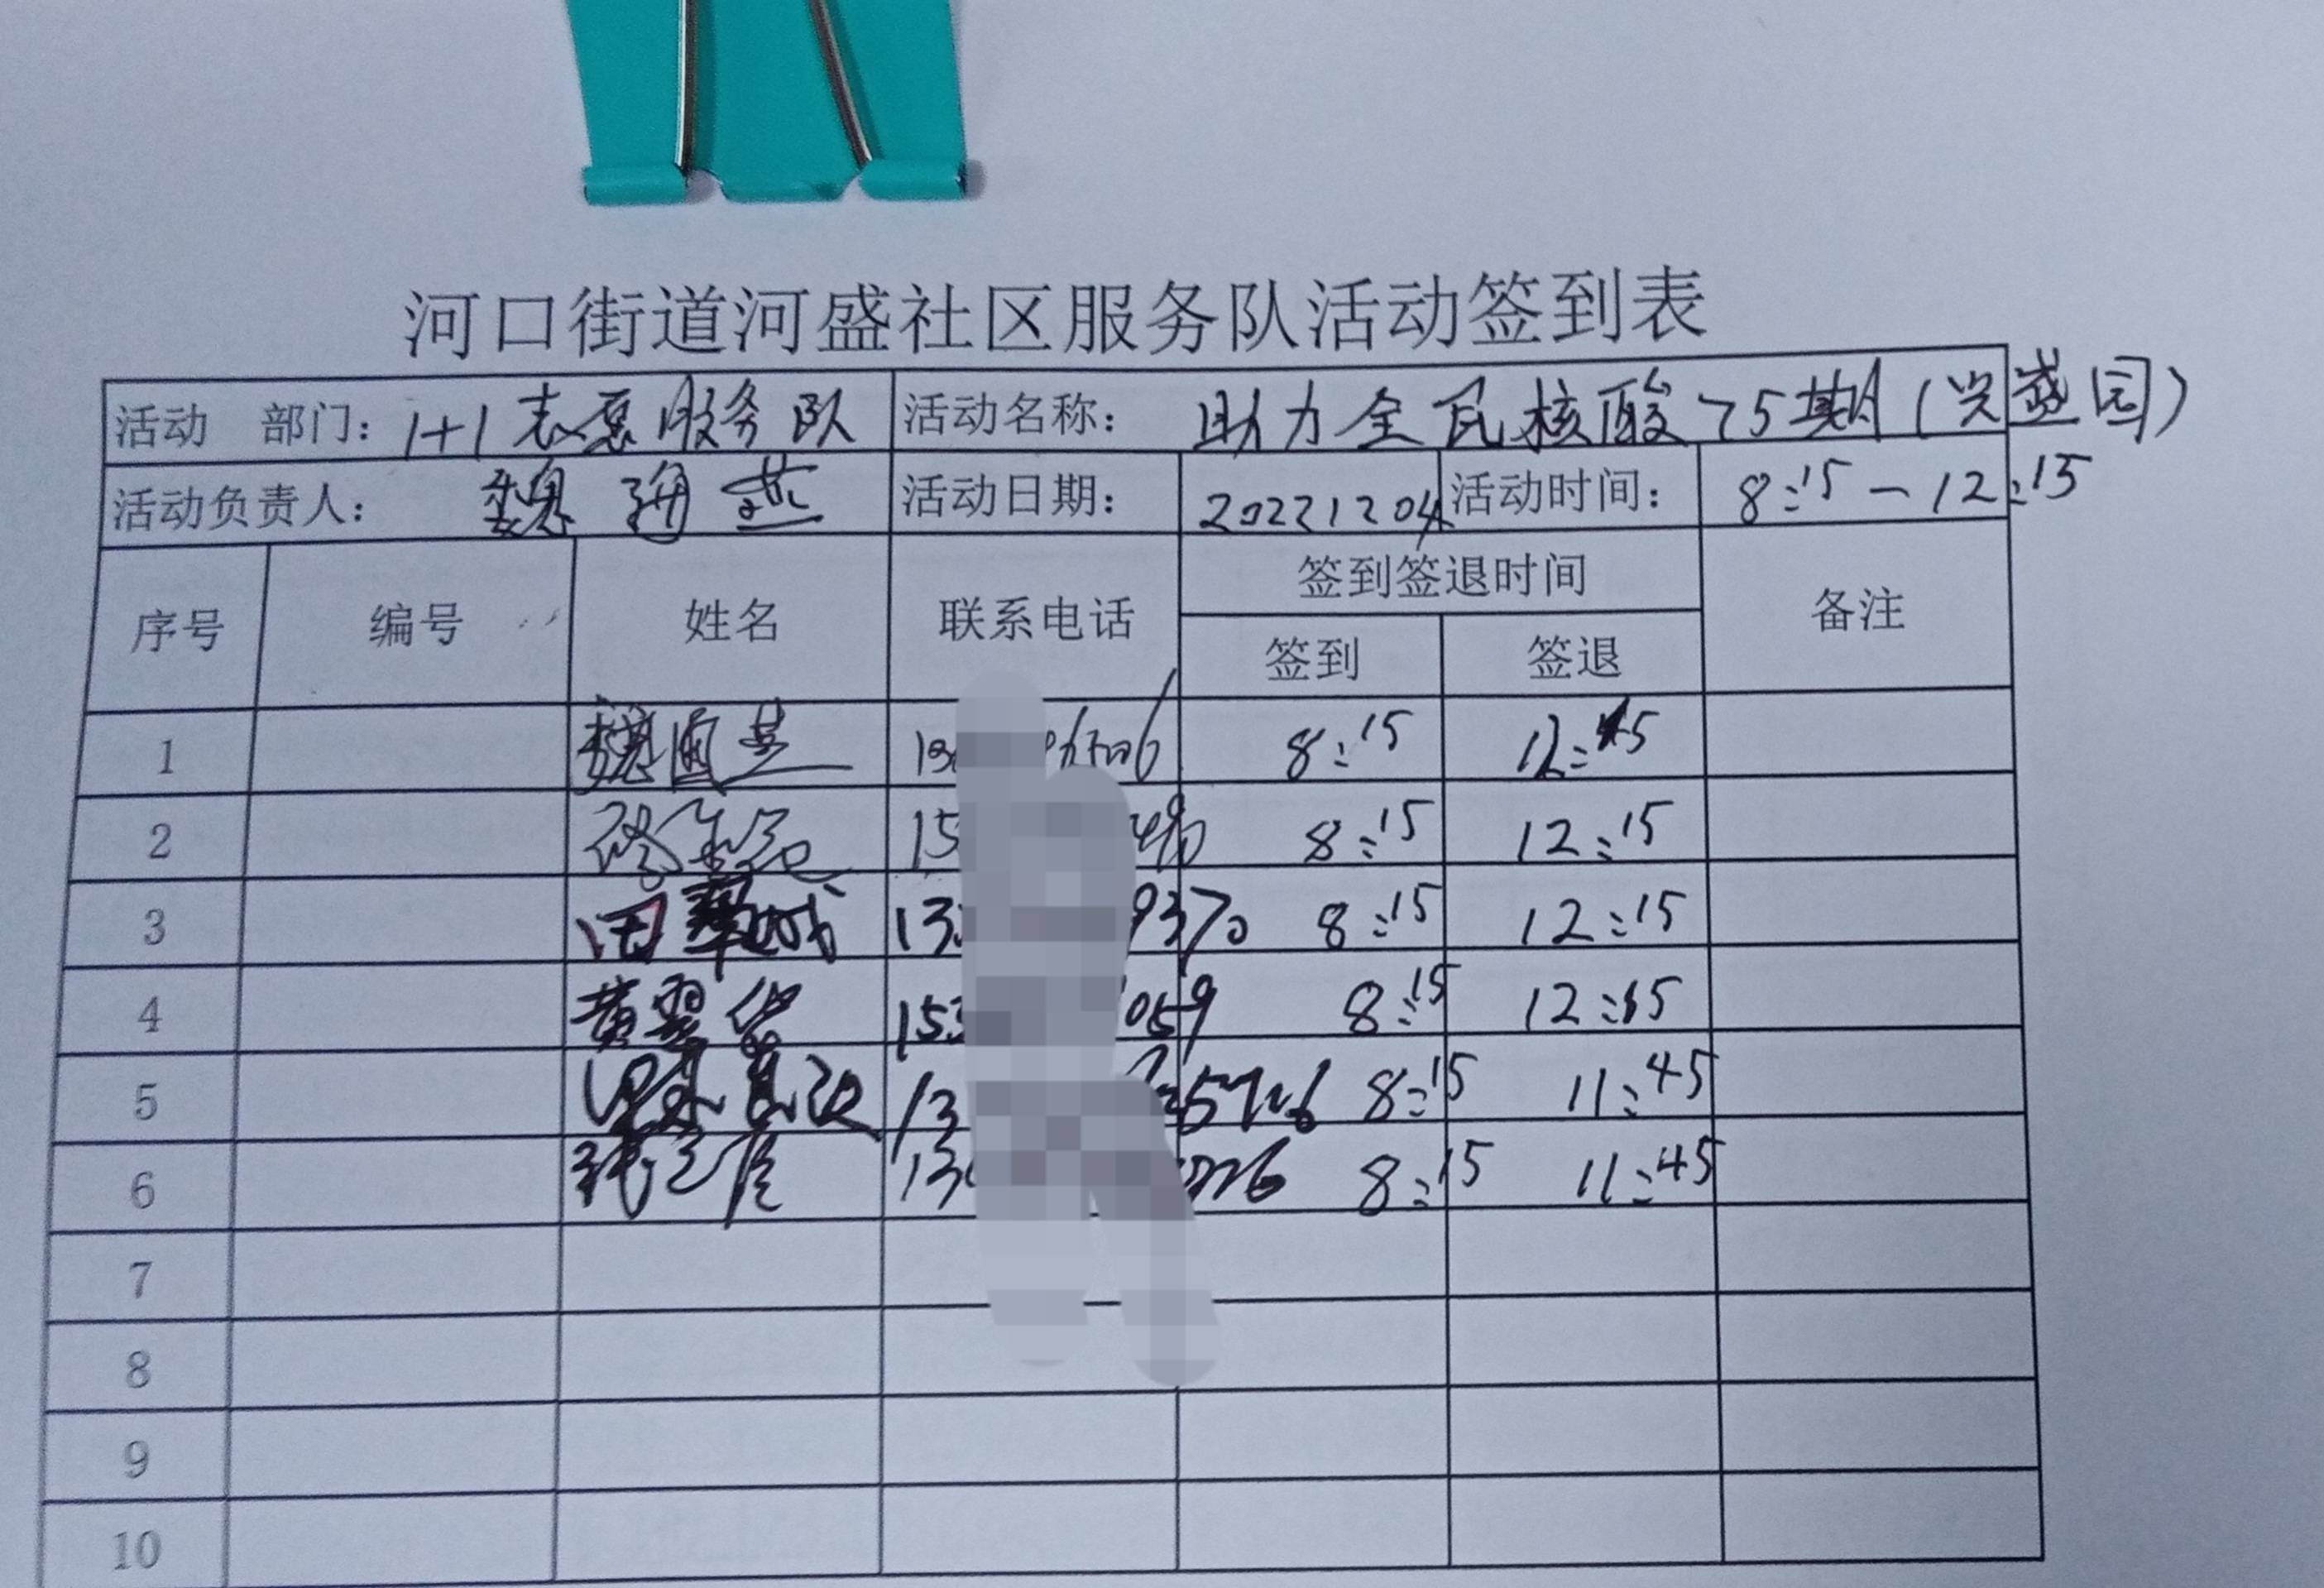 河口街道河盛社区服务队活动签到表
活动 部门: 1+1志愿服务队 活动名称: 助力全民核酸75期(兴盛园)
活动负责人: 魏 燕 活动日期: 20221204 活动时间: 8:15-12:15
序号 编号 姓名 联系电话 签到签退时间 备注
签到 签退
1 魏 8:15 12:15
2 15 490 8:15 12:15
3 田 13 9370 8:15 12:15
4 黄翠 153 059 8:15 12:15
5 13 8:15 11:45
6 13 8:15 11:45
7
8
9
10